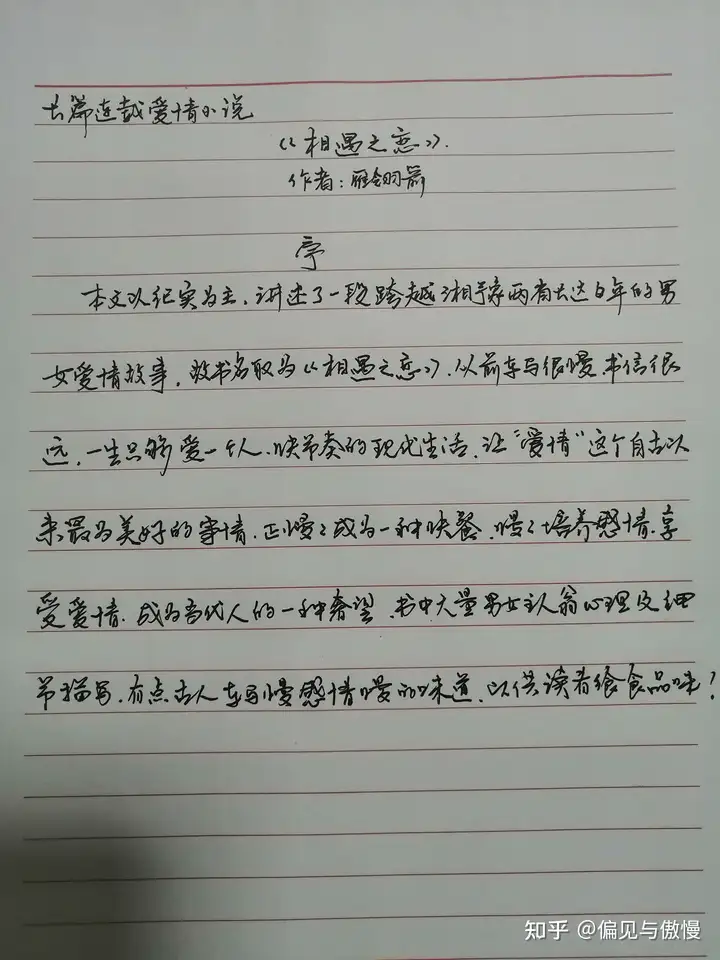 长篇连载爱情小说
《相遇之恋》.
作者:雁翎箭
序
本文以纪实为主,讲述了一段跨越湘豫两省长达百年的男
女爱情故事,故书名取为《相遇之恋》.从前车马很慢,书信很
远,一生只够爱一个人.快节奏的现代生活,让“爱情”这个自古以
来最为美好的事情.正慢々成为一种快餐.慢々培养感情.享
受爱情.成为当代人的一种奢望.书中大量男女主人翁心理及细
节描写.有点古人车马慢感情慢的味道,以供读者餐食品味!
知乎 @偏见与傲慢